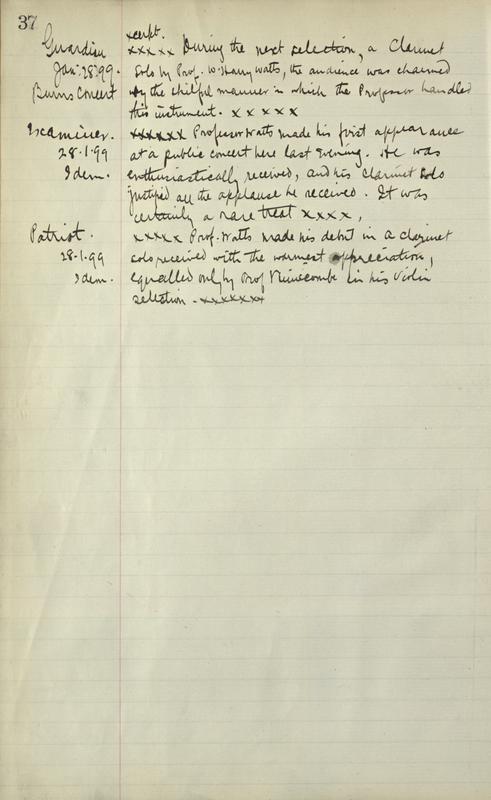 37
excerpt.
Guardian xxxxx During the next selection, a Clarinet
Jan: 28:99. Solo by Prof. W. Harry Watts, the audience was charmed
Burns Concert by the skilful manner in which the Professor handled
this instrument. x x x x x
Examiner. xxxxxx Professor Watts made his first appearance
28.1.99 at a public concert here last evening. He was
Idem. enthusiastically received, and his Clarinet Solo
justified all the applause he received. It was
certainly a rare treat xxxx,
Patriot. xxxxx Prof. Watts made his debut in a clarinet
28.1.99 solo received with the warmest appreciation,
Idem. equalled only by Prof in his Violin
selection - xxxxxxx